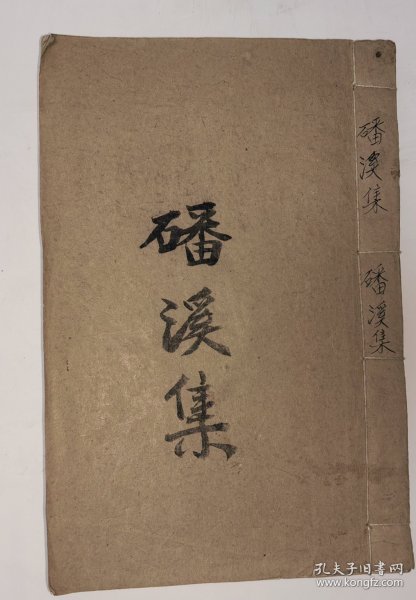 磻溪集
磻溪集
磻溪集
孔夫子旧书网
www.kongfz.com